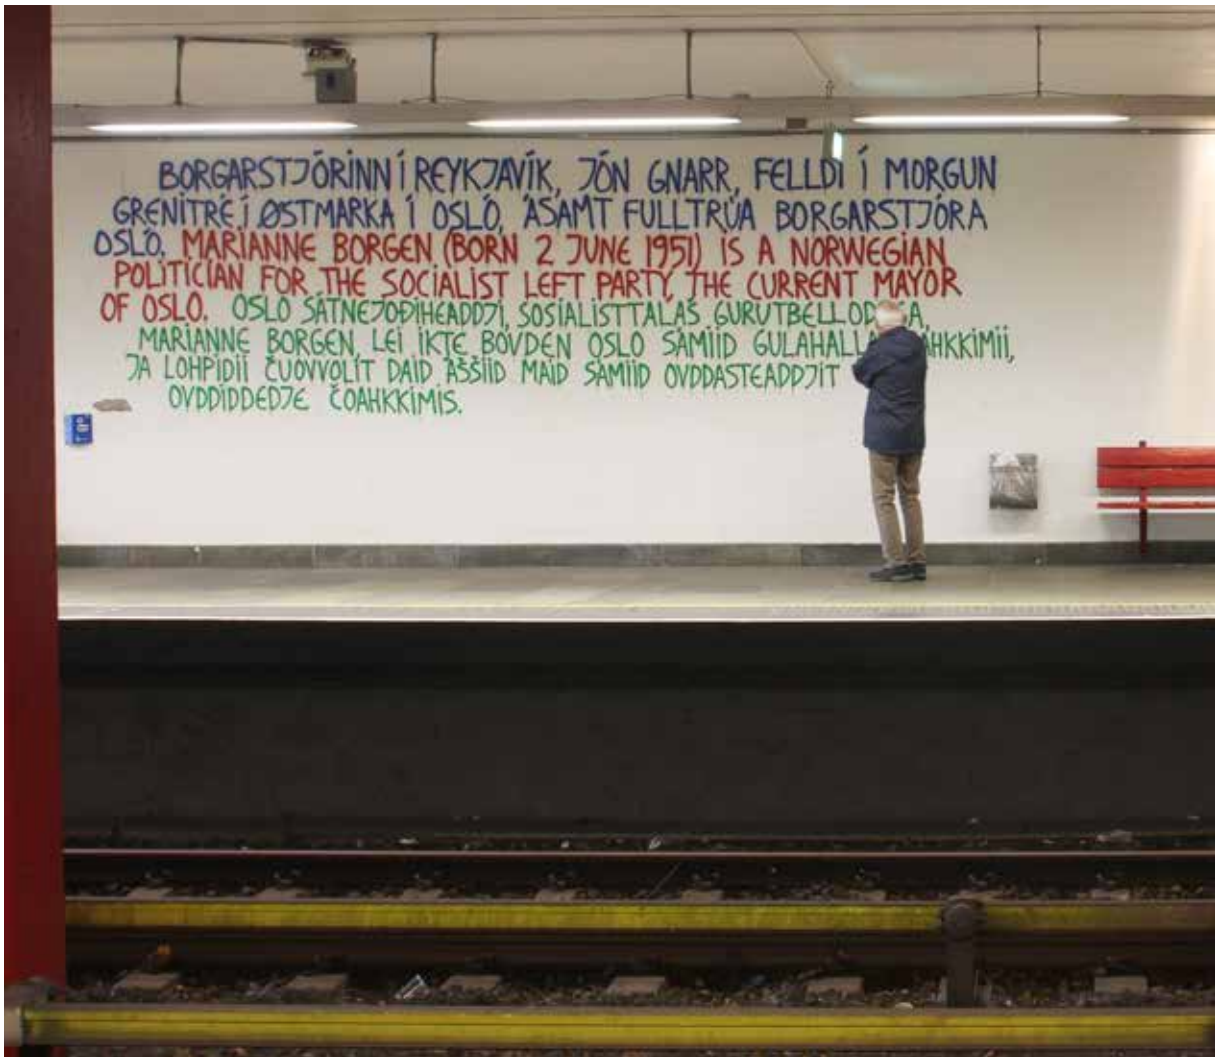 BORGARSTJÓRINN Í REYKJAVÍK, JÓN GNARR, FELLDI Í MORGUN
GRENITRÉ Í ØSTMARKA Í OSLÓ, ÁSAMT FULLTRÚA BORGARSTJÓRA
OSLÓ. MARIANNE BORGEN (BORN 2 JUNE 1951) IS A NORWEGIAN
POLITICIAN FOR THE SOCIALIST LEFT PARTY, THE CURRENT MAYOR
OF OSLO. OSLO SÁTNEJOĐIHEADDJI, SOSIALISTTALAŠ GURUTBELLOD
MARIANNE BORGEN, LEI IKTE BOVDEN OSLO SÁMIID GULAHALLA ÁHKKIMII,
JA LOHPIDII ČUOVVOLIT DAID ÁŠŠIID MAID SÁMIID OVDDASTEADDJIT
OVDDIDDEDJE ČOAHKKIMIS.